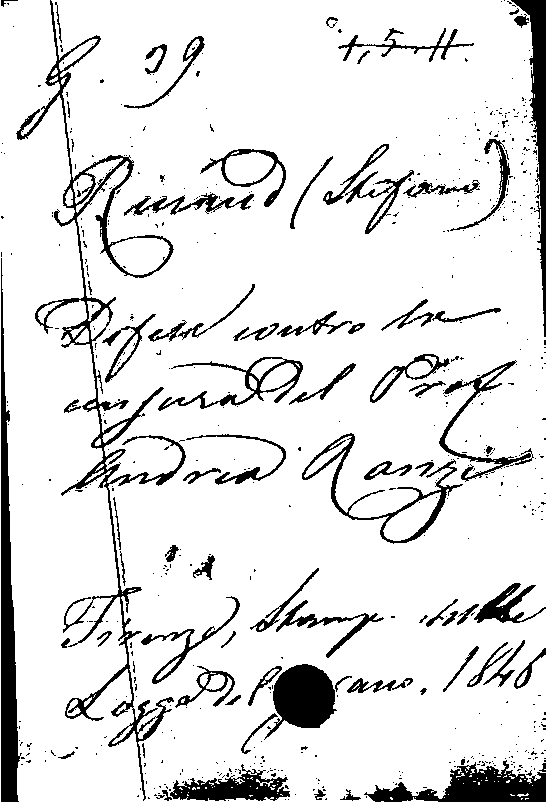 G. 39. 4,5.11.
Rináud (Stefano)
Difesa contro la
censura del Prof.
Andrea Ranzi
Firenze, Stamp. sulle
Logge del grano. 1846